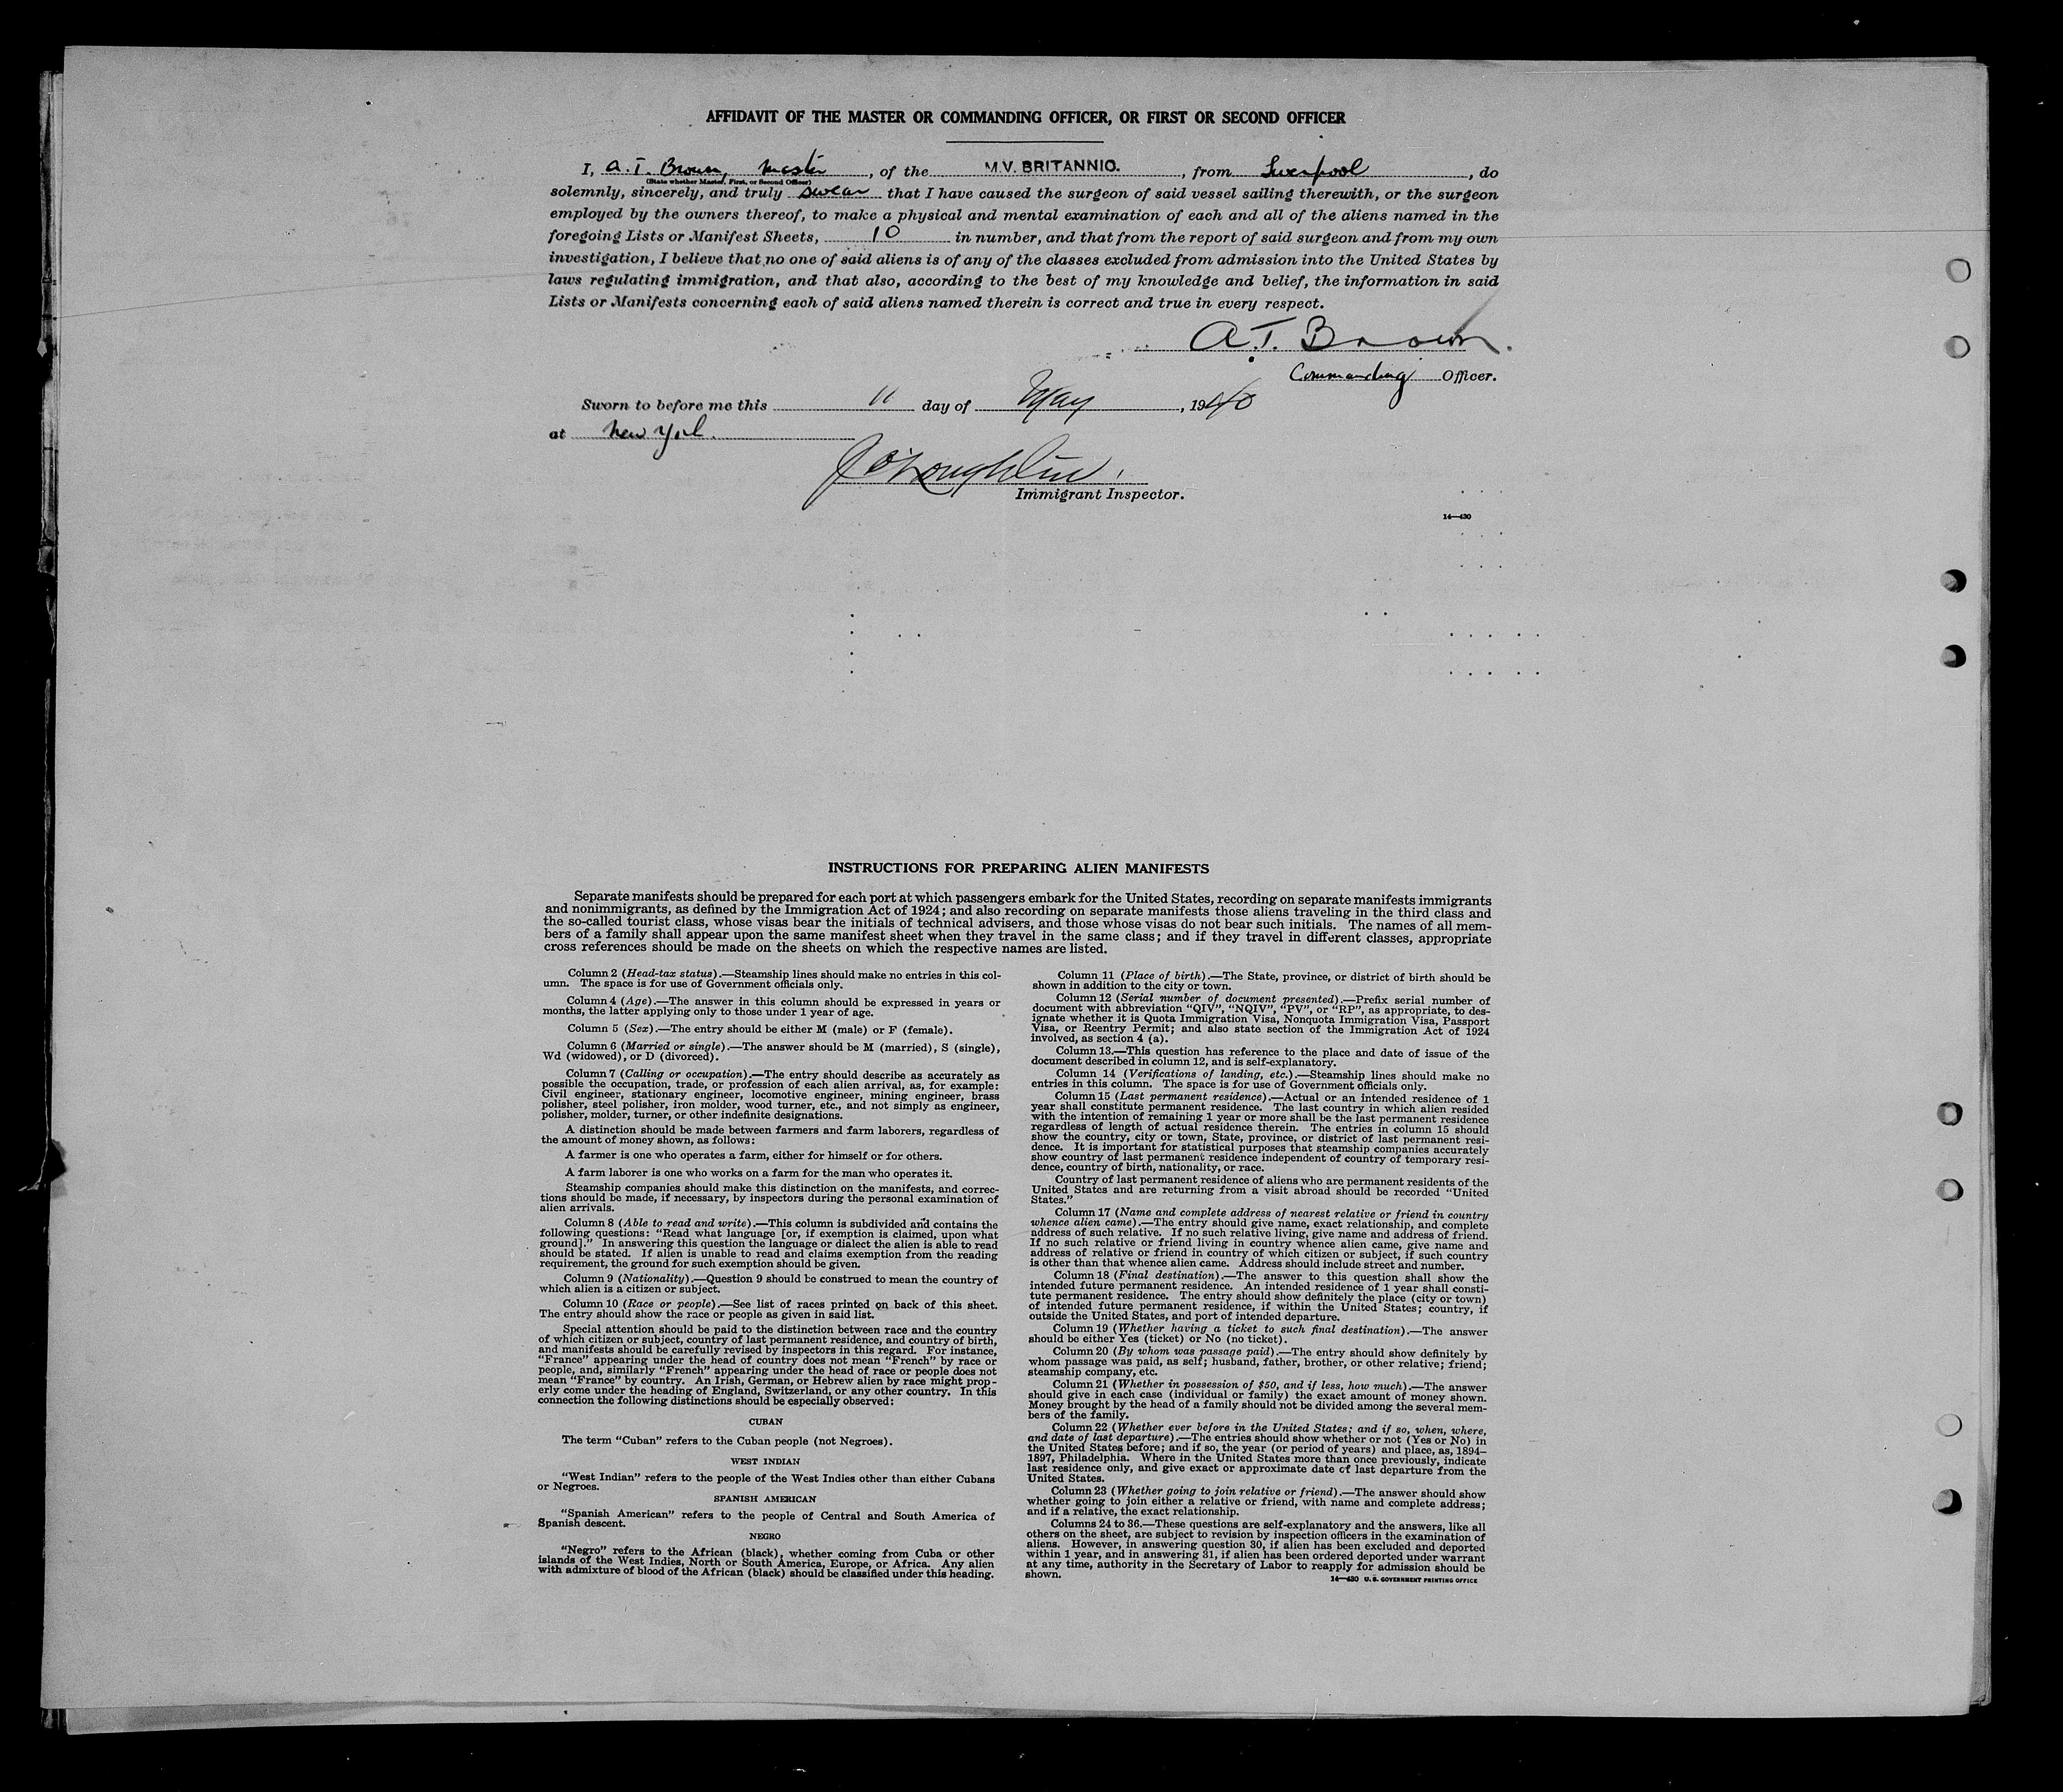 AFFIDAVIT OF THE MASTER OR COMMANDING OFFICER, OR FIRST OR SECOND OFFICER
I, A.T. Brown, Master, of the M.V. BRITANNIC., from Liverpool, do
(State whether Master, First, or Second Officer)
solemnly, sincerely, and truly swear that I have caused the surgeon of said vessel sailing therewith, or the surgeon
employed by the owners thereof, to make a physical and mental examination of each and all of the aliens named in the
foregoing Lists or Manifest Sheets, 10 in number, and that from the report of said surgeon and from my own
investigation, I believe that no one of said aliens is of any of the classes excluded from admission into the United States by
laws regulating immigration, and that also, according to the best of my knowledge and belief, the information in said
Lists or Manifests concerning each of said aliens named therein is correct and true in every respect.
A.T. Brown.
Commanding Officer.
Sworn to before me this 11 day of May, 1940
at New York.
Immigrant Inspector.
14—430
INSTRUCTIONS FOR PREPARING ALIEN MANIFESTS
Separate manifests should be prepared for each port at which passengers embark for the United States, recording on separate manifests immigrants
and nonimmigrants, as defined by the Immigration Act of 1924; and also recording on separate manifests those aliens traveling in the third class and
the so-called tourist class, whose visas bear the initials of technical advisers, and those whose visas do not bear such initials. The names of all mem-
bers of a family shall appear upon the same manifest sheet when they travel in the same class; and if they travel in different classes, appropriate
cross references should be made on the sheets on which the respective names are listed.
Column 2 (Head-tax status).—Steamship lines should make no entries in this col-
umn. The space is for use of Government officials only.
Column 4 (Age).—The answer in this column should be expressed in years or
months, the latter applying only to those under 1 year of age.
Column 5 (Sex).—The entry should be either M (male) or F (female).
Column 6 (Married or single).—The answer should be M (married), S (single),
Wd (widowed), or D (divorced).
Column 7 (Calling or occupation).—The entry should describe as accurately as
possible the occupation, trade, or profession of each alien arrival, as, for example:
Civil engineer, stationary engineer, locomotive engineer, mining engineer, brass
polisher, steel polisher, iron molder, wood turner, etc., and not simply as engineer,
polisher, molder, turner, or other indefinite designations.
A distinction should be made between farmers and farm laborers, regardless of
the amount of money shown, as follows:
A farmer is one who operates a farm, either for himself or for others.
A farm laborer is one who works on a farm for the man who operates it.
Steamship companies should make this distinction on the manifests, and correc-
tions should be made, if necessary, by inspectors during the personal examination of
alien arrivals.
Column 8 (Able to read and write).—This column is subdivided and contains the
following questions: "Read what language [or, if exemption is claimed, upon what
ground]." In answering this question the language or dialect the alien is able to read
should be stated. If alien is unable to read and claims exemption from the reading
requirement, the ground for such exemption should be given.
Column 9 (Nationality).—Question 9 should be construed to mean the country of
which alien is a citizen or subject.
Column 10 (Race or people).—See list of races printed on back of this sheet.
The entry should show the race or people as given in said list.
Special attention should be paid to the distinction between race and the country
of which citizen or subject, country of last permanent residence, and country of birth,
and manifests should be carefully revised by inspectors in this regard. For instance,
"France" appearing under the head of country does not mean "French" by race or
people, and, similarly "French" appearing under the head of race or people does not
mean "France" by country. An Irish, German, or Hebrew alien by race might prop-
erly come under the heading of England, Switzerland, or any other country. In this
connection the following distinctions should be especially observed:
CUBAN
The term "Cuban" refers to the Cuban people (not Negroes).
WEST INDIAN
"West Indian" refers to the people of the West Indies other than either Cubans
or Negroes.
SPANISH AMERICAN
"Spanish American" refers to the people of Central and South America of
Spanish descent.
NEGRO
"Negro" refers to the African (black), whether coming from Cuba or other
islands of the West Indies, North or South America, Europe, or Africa. Any alien
with admixture of blood of the African (black) should be classified under this heading.
Column 11 (Place of birth).—The State, province, or district of birth should be
shown in addition to the city or town.
Column 12 (Serial number of document presented).—Prefix serial number of
document with abbreviation "QIV", "NQIV", "PV", or "RP", as appropriate, to des-
ignate whether it is Quota Immigration Visa, Nonquota Immigration Visa, Passport
Visa, or Reentry Permit; and also state section of the Immigration Act of 1924
involved, as section 4 (a).
Column 13.—This question has reference to the place and date of issue of the
document described in column 12, and is self-explanatory.
Column 14 (Verifications of landing, etc.).—Steamship lines should make no
entries in this column. The space is for use of Government officials only.
Column 15 (Last permanent residence).—Actual or an intended residence of 1
year shall constitute permanent residence. The last country in which alien resided
with the intention of remaining 1 year or more shall be the last permanent residence
regardless of length of actual residence therein. The entries in column 15 should
show the country, city or town, State, province, or district of last permanent resi-
dence. It is important for statistical purposes that steamship companies accurately
show country of last permanent residence independent of country of temporary resi-
dence, country of birth, nationality, or race.
Country of last permanent residence of aliens who are permanent residents of the
United States and are returning from a visit abroad should be recorded "United
States."
Column 17 (Name and complete address of nearest relative or friend in country
whence alien came).—The entry should give name, exact relationship, and complete
address of such relative. If no such relative living, give name and address of friend.
If no such relative or friend living in country whence alien came, give name and
address of relative or friend in country of which citizen or subject, if such country
is other than that whence alien came. Address should include street and number.
Column 18 (Final destination).—The answer to this question shall show the
intended future permanent residence. An intended residence of 1 year shall consti-
tute permanent residence. The entry should show definitely the place (city or town)
of intended future permanent residence, if within the United States; country, if
outside the United States, and port of intended departure.
Column 19 (Whether having a ticket to such final destination).—The answer
should be either Yes (ticket) or No (no ticket).
Column 20 (By whom was passage paid).—The entry should show definitely by
whom passage was paid, as self; husband, father, brother, or other relative; friend;
steamship company, etc.
Column 21 (Whether in possession of $50, and if less, how much).—The answer
should give in each case (individual or family) the exact amount of money shown.
Money brought by the head of a family should not be divided among the several mem-
bers of the family.
Column 22 (Whether ever before in the United States; and if so, when, where,
and date of last departure).—The entries should show whether or not (Yes or No) in
the United States before; and if so, the year (or period of years) and place, as, 1894–
1897, Philadelphia. Where in the United States more than once previously, indicate
last residence only, and give exact or approximate date of last departure from the
United States.
Column 23 (Whether going to join relative or friend).—The answer should show
whether going to join either a relative or friend, with name and complete address;
and if a relative, the exact relationship.
Columns 24 to 36.—These questions are self-explanatory and the answers, like all
others on the sheet, are subject to revision by inspection officers in the examination of
aliens. However, in answering question 30, if alien has been excluded and deported
within 1 year, and in answering 31, if alien has been ordered deported under warrant
at any time, authority in the Secretary of Labor to reapply for admission should be
shown.
14—430 U. S. GOVERNMENT PRINTING OFFICE